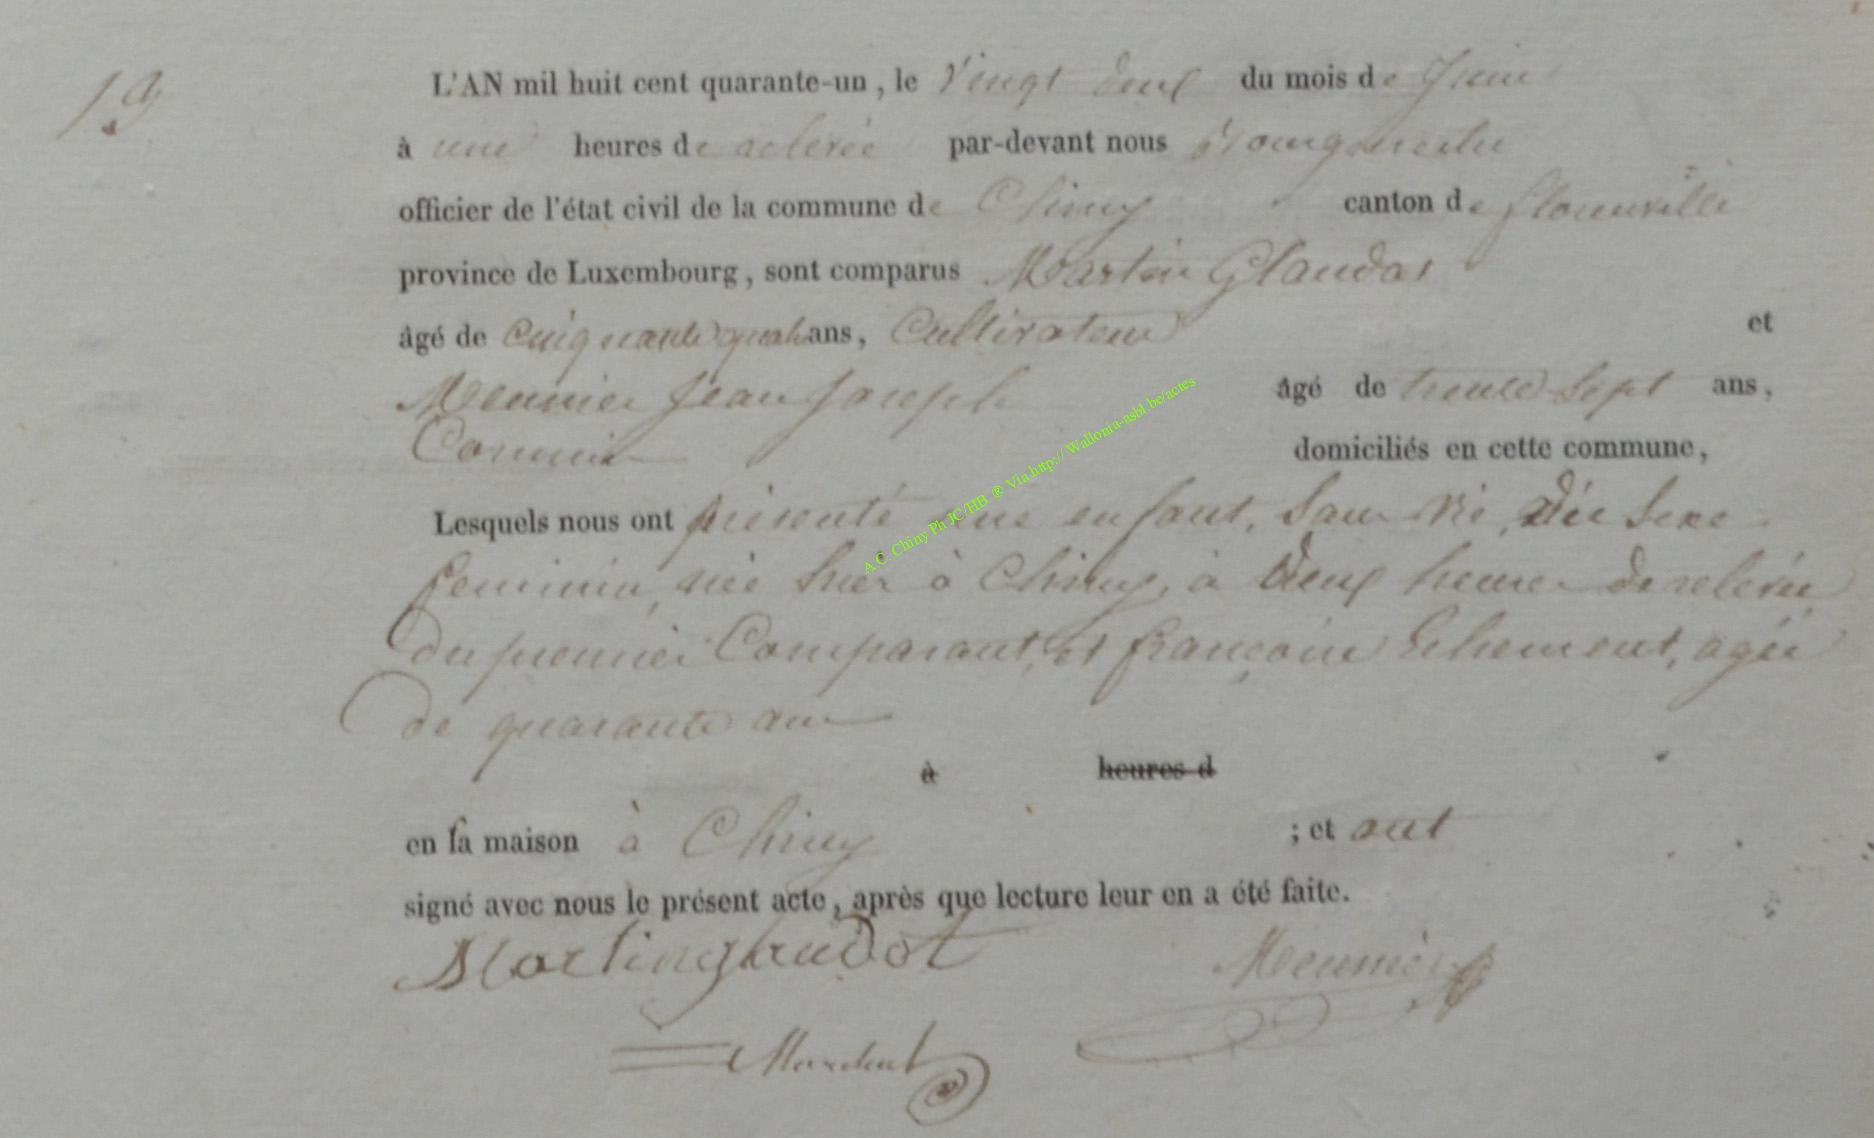 19
L'AN mil huit cent quarante-un, le vingt deux du mois de Juin
à une heures de relevée par-devant nous Bourgmestre
officier de l'état civil de la commune de Chiny canton de florenville
province de Luxembourg, sont comparus Martin Glaudot
âgé de cinquante quatre ans, Cultivateur et
Meunier Jean Joseph âgé de trente sept ans,
Commis domiciliés en cette commune,
Lesquels nous ont présenté une enfant, sans vie, du sexe
feminin, née hier à Chiny, à deux heures de relevée,
du premier Comparant, et françoise agée
de quarante ans
à heures d
en sa maison à Chiny ; et ont
signé avec nous le présent acte, après que lecture leur en a été faite.
Martin glaudot Meunier
A.C. Chiny Ph JC/HB ® Via.http:// Wallonia-asbl.be/actes